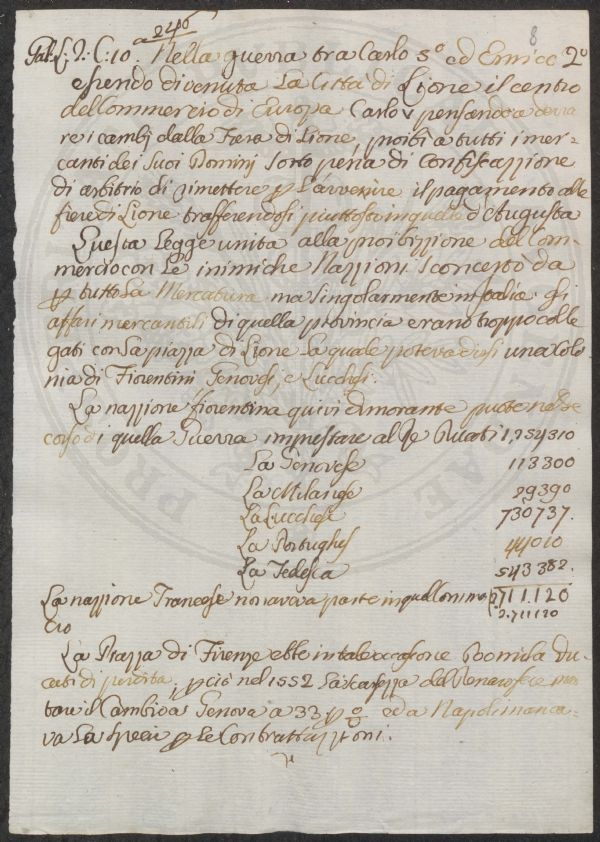 a 2406
8
Gal: L: 2: C: 10. Nella guerra tra Carlo 5º ed Enrico 2º
essendo divenuta La Città di Lione il centro
del Commercio di Europa Carlo V pensando a devia
re i cambj dalla Fiera di Lione, proibì a tutti i mer-
canti dei Suoi Dominj sotto pena di Confiscazzione
di arbitrio di rimettere p L'avvenire il pagamento alle
fiere di Lione trasferendosi piuttosto in quelle d'Augusta
Questa Legge unita alla proibizzione del Com-
mercio con Le inimiche Nazzioni sconcertò da
p tutto La Mercatura ma singolarmente in Italia. Gli
affari mercantili di quella provincia erano troppo colle
gati con La piazza di Lione La quale poteva dirsi una Colo
nia di Fiorentini Genovesi, e Lucchesi.
La nazzione fiorentina quivi dimorante puote nel de
corso di quella Guerra imprestare al Re Ducati 1,254310
La Genovese 113300
La Milanese 29390
La Lucchese 730737.
La Portughes 44010
La Tedesca 543382.
La nazzione Francese non aveva parte in quell 2711.120
2.711120
La Piazza di Firenze ebbe in tale occasione Ducati
cati di perdita, p ciò nel 1552 La scarsezza del Denero fece mon
tare il Cambio a Genova a 33 p % ed a Napoli manca-
va La Specie p Le Contrattazzioni.